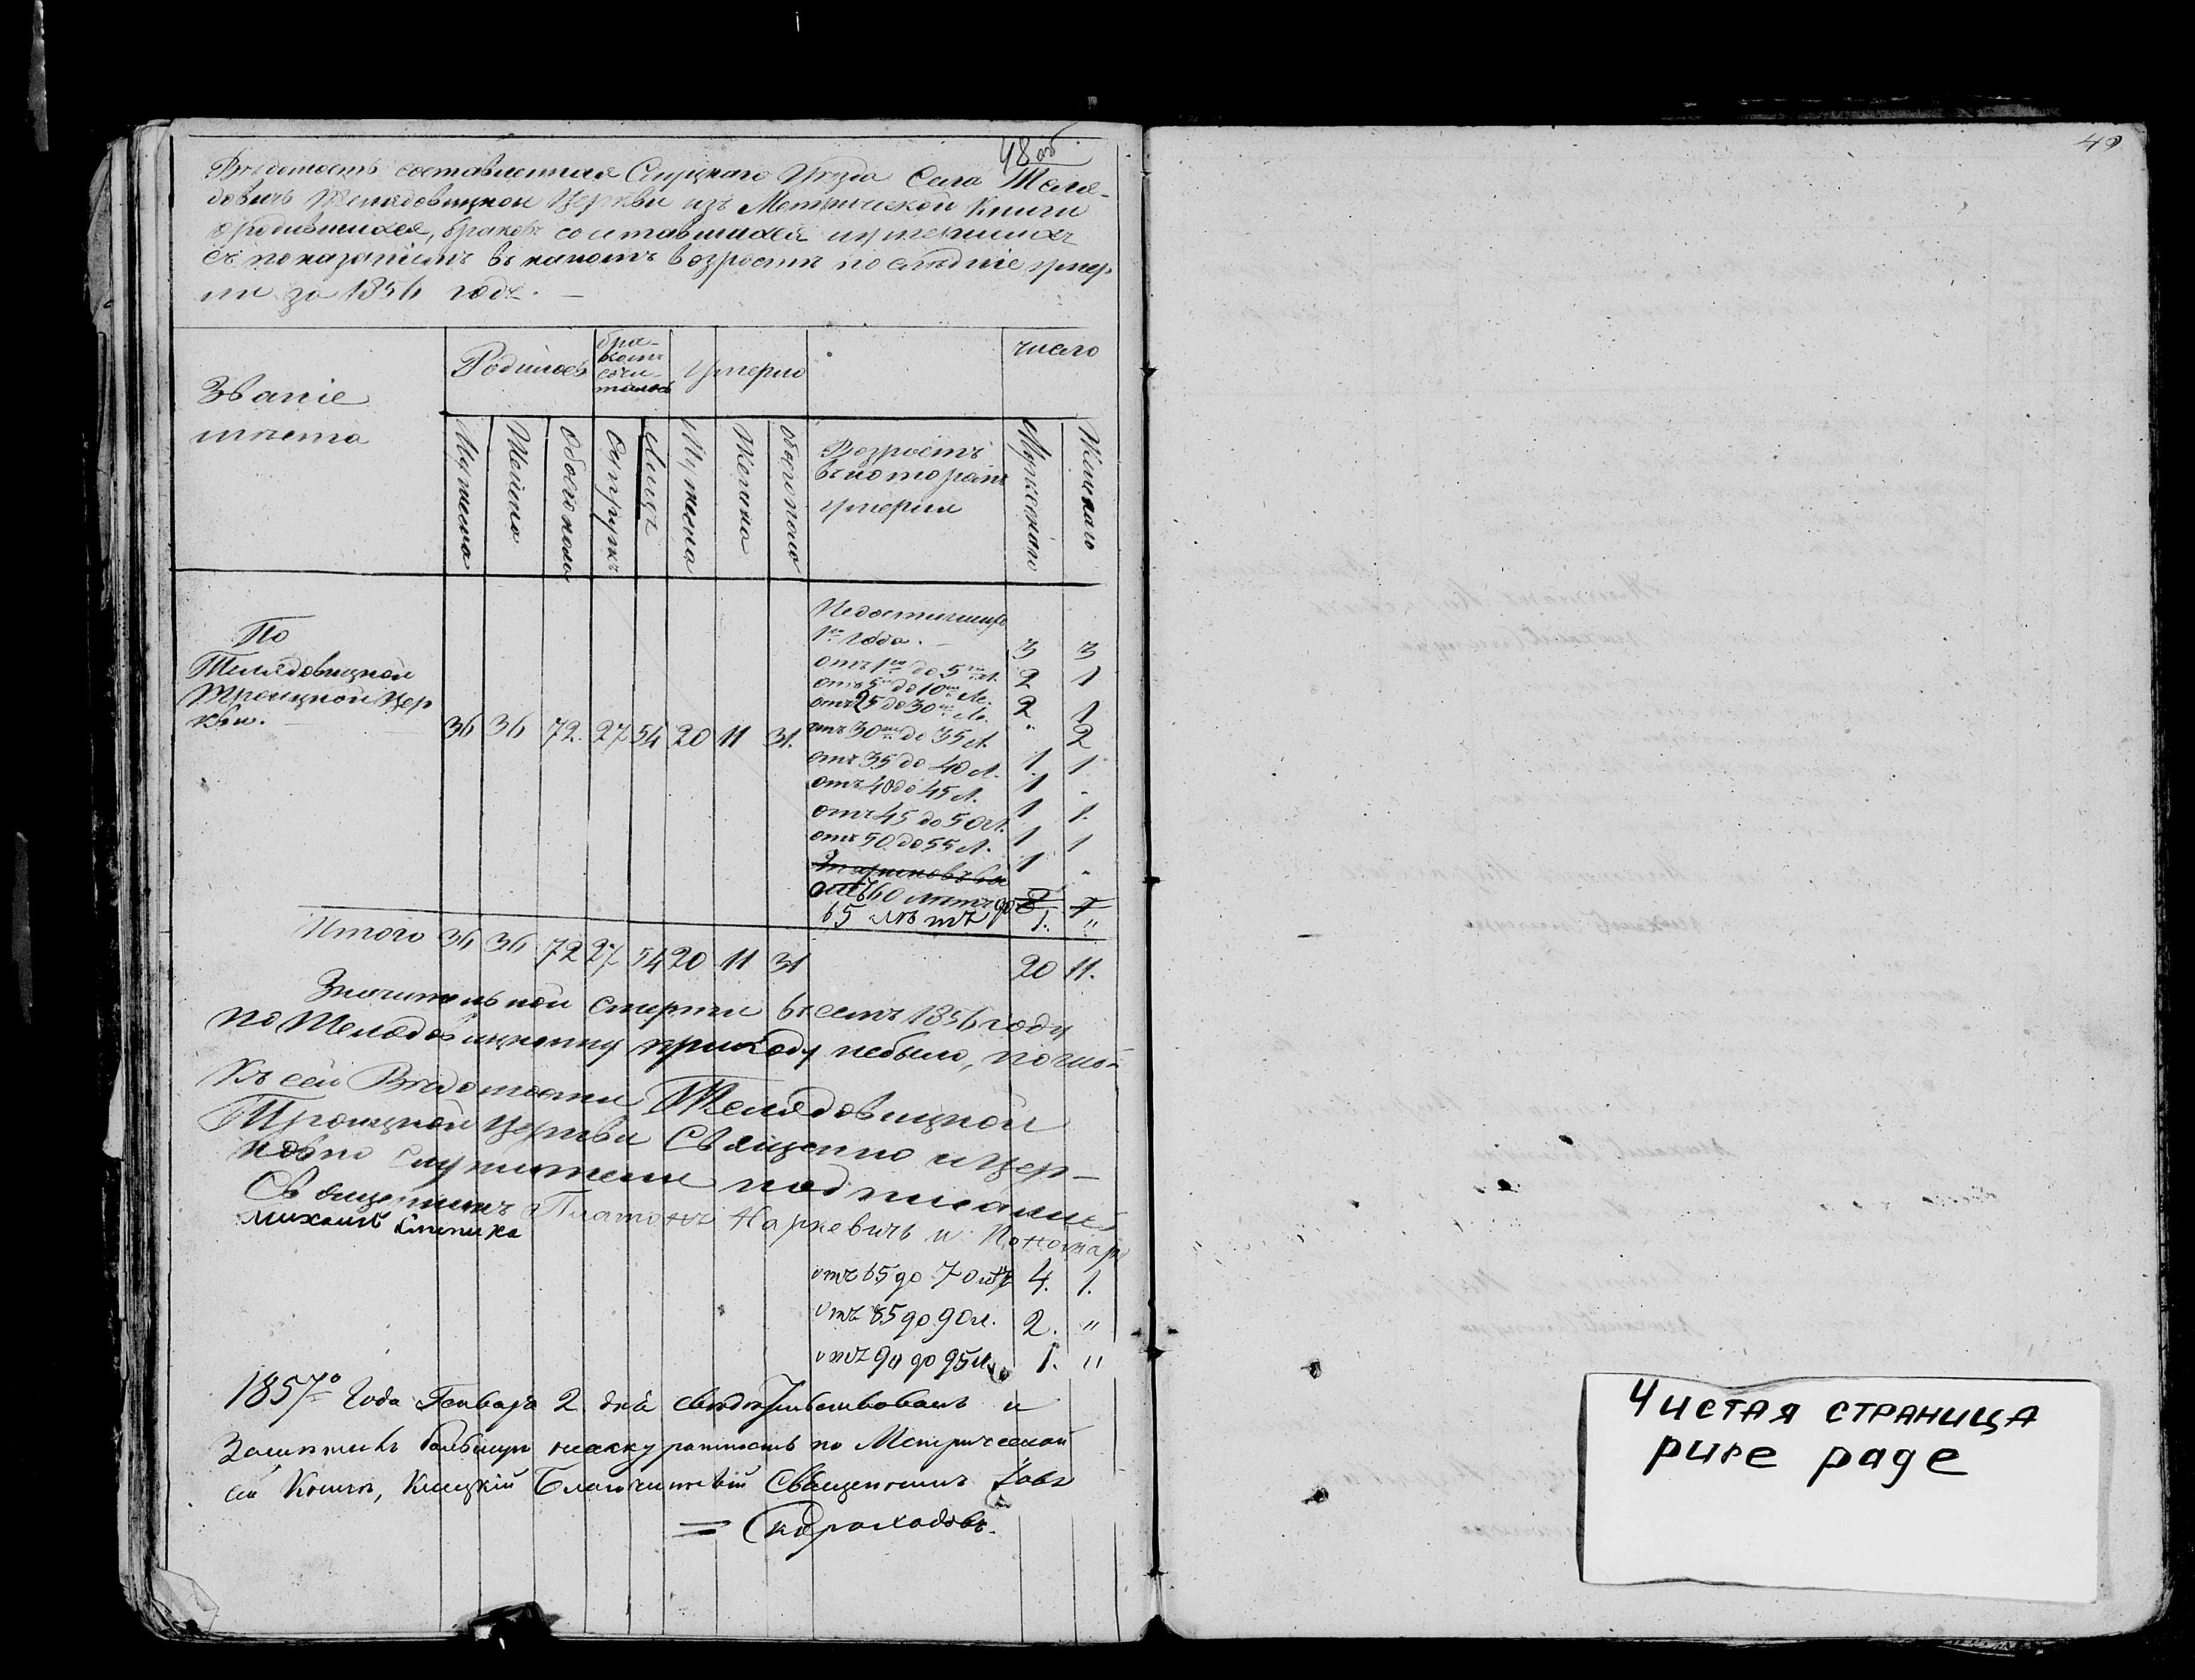 48 об
49
Вѣдомость составленная Слуцкаго Уѣзда Села Теля-
довичь Телядовицкой Церкви изъ Метрической Книги
о родившихся, браковъ сочитавшихся и умершихъ
съ показаніемъ въ какомъ возростѣ послѣдніе умер
ли за 1856 годъ. —
Званіе
мѣста
Родилось
бра-
комъ
сочи-
талось
Умерло
число
Мужеска
Женска
Обоего пола
Супругъ
Лицъ
Мужеска
Женска
обоего пола
Возростъ
въ которомъ
умерли
Мужескаго
Женскаго
По
Телядовицкой
Троицкой Цер
кви.
36 36 72. 27 54 20 11 31.
Недостигшихъ
1го Года. — 3 3
отъ 1го до 5ти Л. 2 1
отъ 5ти до 10ти Л. 2 1
отъ 25 до 30ти Л. " 2
отъ 30ти до 35 Л. 1 1
отъ 35 до 40 Л. 1 "
отъ 40 до 45 Л. 1 1.
отъ 45 до 50 Л. 1 1
отъ 50 до 55 Л. 1 "
отъ 60 лѣтъ до
65 лѣтъ 1. "
Итого 36 36 72 27 54 20 11 31 20 11.
Значительной смерти въ семъ 1856 году
по Телядовицкому приходу небыло,
Къ сей Вѣдомости Телядовицкой
Троицкой Церкви Священно и Цер-
ковно служители подписались
Священникъ Платонъ Наркевичъ и Пономарь
Михаилъ
отъ 65 до 70 лѣтъ 4. 1.
отъ 85 до 90 л. 2. "
отъ 90 до 95 л. 1. "
1857го Года Генваря 2 дня свидѣтельствовалъ и
Замѣтилъ большую неаккуратность по Метрической
сей Книгѣ, Клецкій Благочинный Священникъ Іовъ
= Скороходовъ.
Чистая страница
pure page